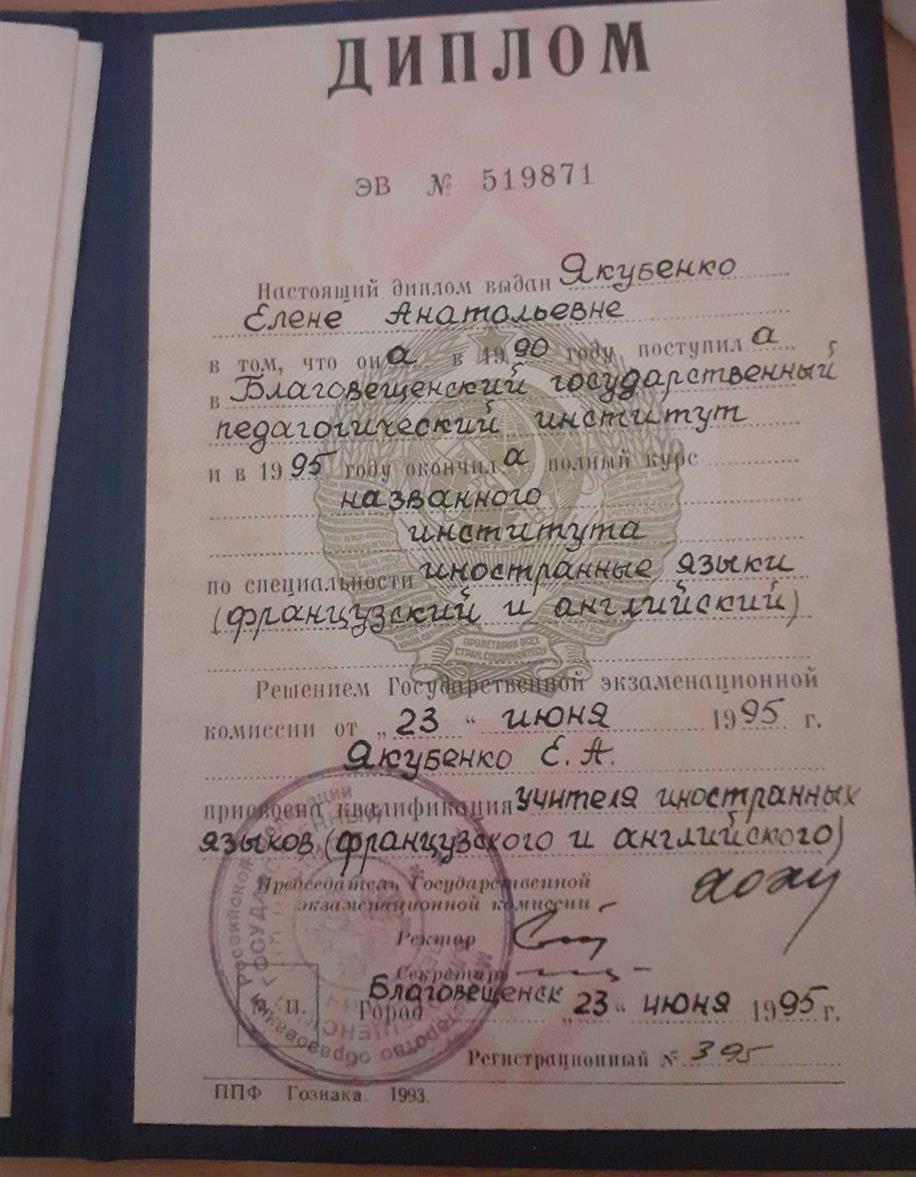 ДИПЛОМ
ЭВ № 519871
Настоящий диплом выдан Якубенко
Елене Анатольевне
в том, что она в 1990 году поступила
в Благовещенский государственный
педагогический институт
и в 1995 году окончила полный курс
названного
института
по специальности иностранные языки
(французский и английский)
ПРОЛЕТАРИИ ВСЕХ
СТРАН, СОЕДИНЯЙТЕСЬ!
Решением Государственной экзаменационной
комиссии от „23“ июня 1995 г.
Якубенко Е. А.
присвоена квалификация учителя иностранных
языков (французского и английского)
Председатель Государственной
экзаменационной комиссии
Ректор
Секретарь
М. П.
Город Благовещенск „23“ июня 1995 г.
Регистрационный № 395
ППФ Гознака. 1993.